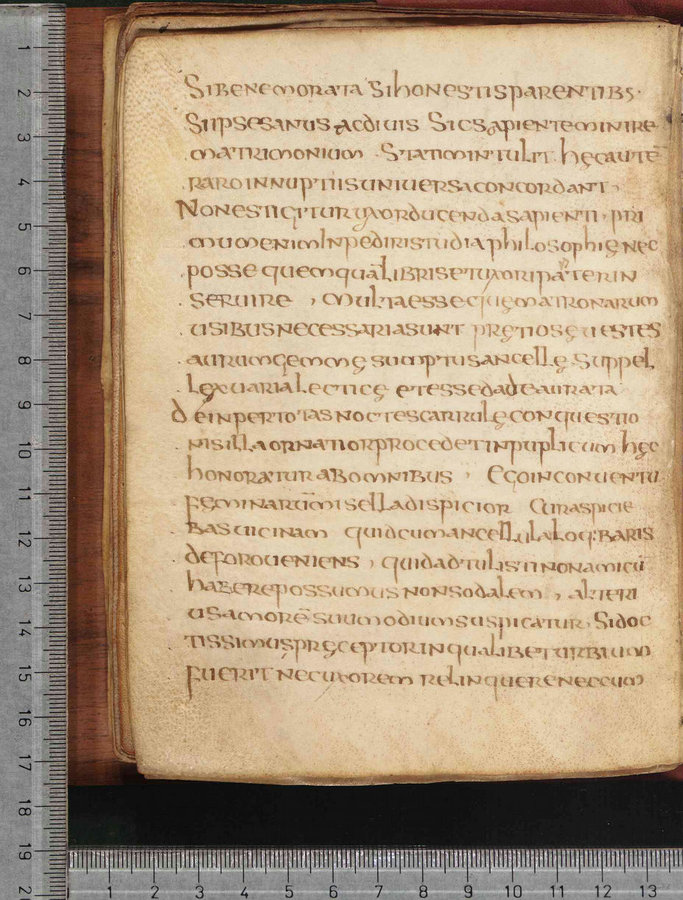 Sibenemorata Sihonestisparentibs·
Siipsesanus acdiuis Sicsapienteminire
matrimonium · Statimintulit· hęcautē
raroinnuptiisuniuersaconcordant ,
Nonestigituruxorducendasapienti · pri
mumenimInpediristudiaphilosophię nec
posse quemquā librisetuxoripaterin
seruire , multaessequęmatronarum
usibusnecessariasunt prętiosęuestes
aurumgemmę sumptusancellę suppel
lexuarialecticę etessedadeaurata
deinpertotasnoctesgarrulęconquestio
nisillaornatiorprocedetinpuplicum hęc
honoraturabomnibus , Egoinconuentu
fęminarummiselladispicior Curaspicie
basuicinam quidcumancellulaloq:baris
deforoueniens , quidadtulistinonamicū
haberepossumusnonsodalem , alteri
usamorē suumodiumsuspicatur , Sidoc
tissimuspręceptorinqualibeturbium
fuerit necuxorem relinquereneccum